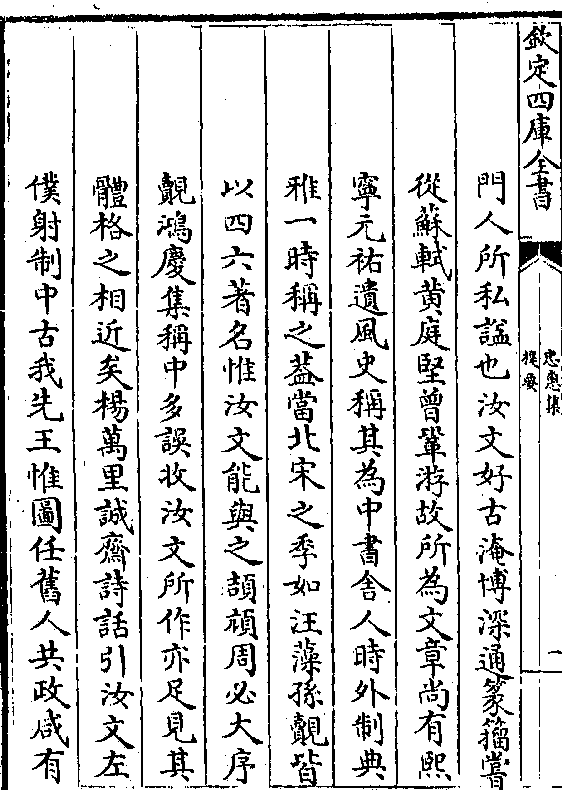 欽定四庫全書
忠惠集
提要
一
門人所私諡也汝文好古淹博深通篆籀嘗
從蘇軾黄庭堅曾鞏游故所為文章尚有熙
寧元祐遺風史稱其為中書舍人時外制典
雅一時稱之葢當北宋之季如汪藻孫覿皆
以四六著名惟汝文能與之頡頏周必大序
覿鴻慶集稱中多誤收汝文所作亦足見其
體格之相近矣楊萬里誠齋詩話引汝文左
僕射制中古我先王惟圖任舊人共政咸有